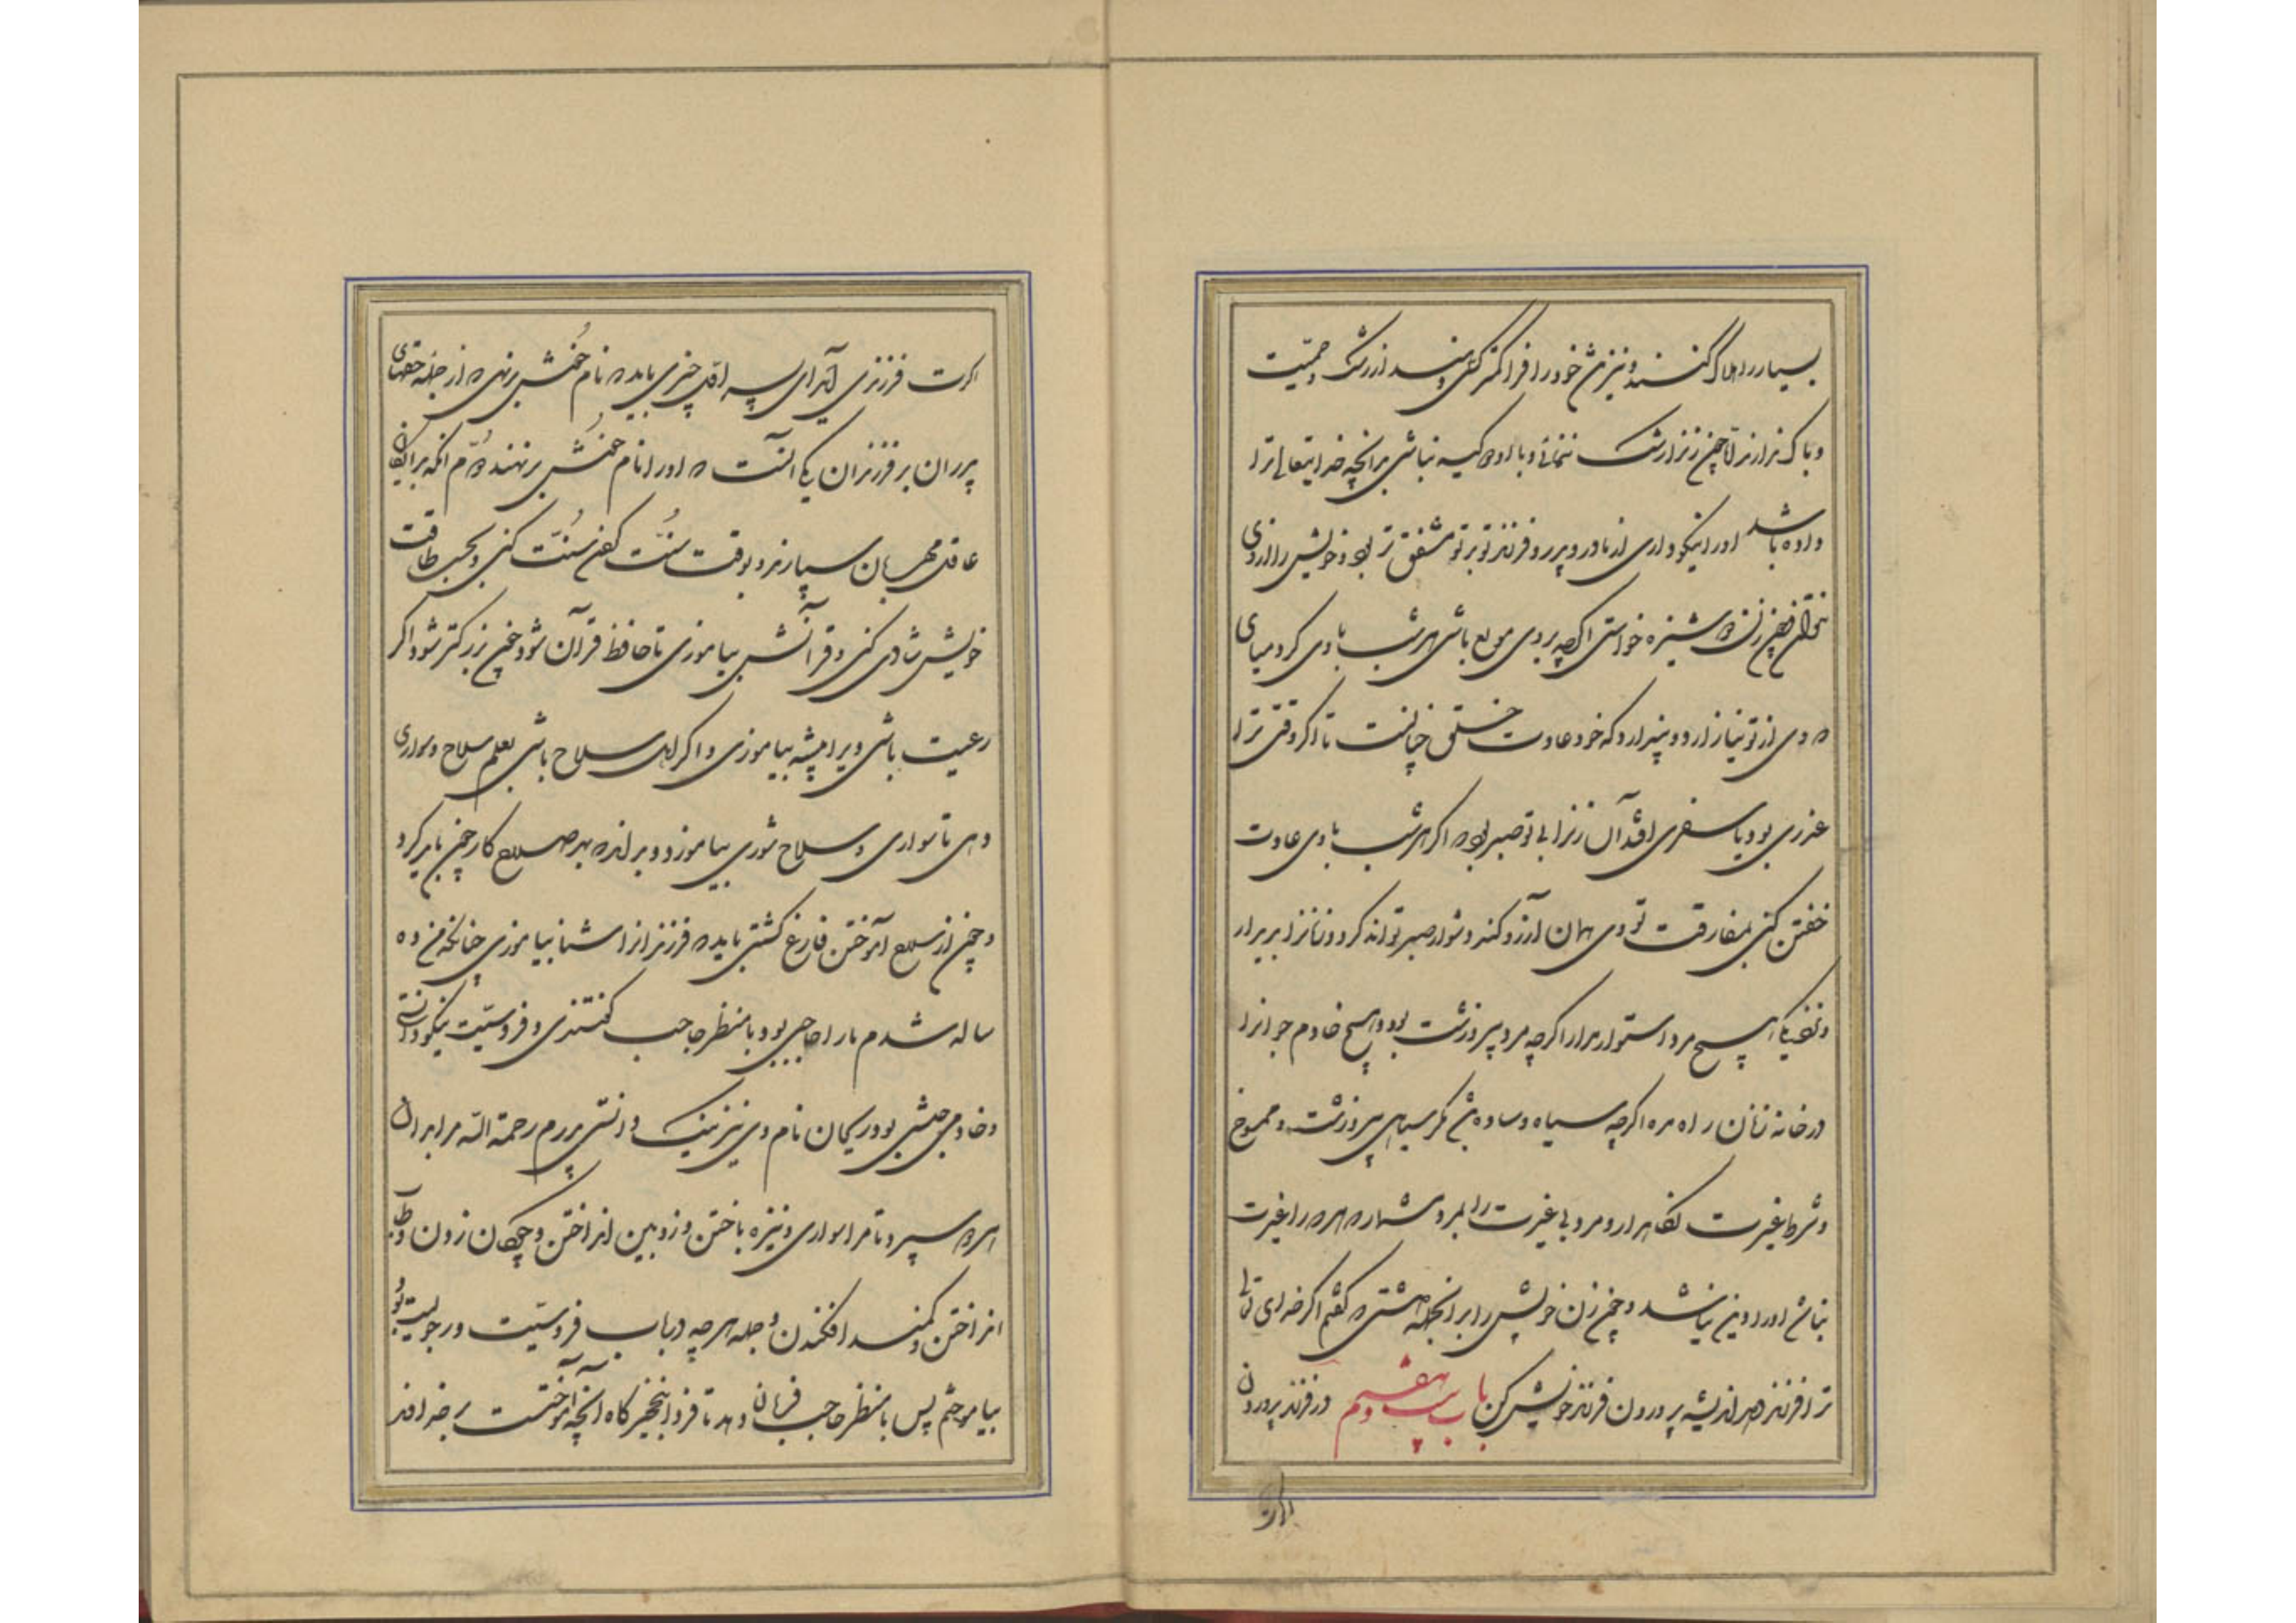 بسیار را هلاک کنند و نیز تن خود را فرا کمتر کسی دهند از رشک و حمیت
و باک ندارند اما چون زن را رشک ننمائی و با او دو کیسه نباشی بر آنچه خدایتعالی ترا
داده باشد او را نیکو داری از مادر و پدر و فرزند تو بر تو مشفق تر بود و خویش را از وی
زن دوشیزه خواستی اگرچه بر وی مولع باشی هر شب با وی گرد میای
که وی از تو نیازارد و پندارد که خود عادت خلق چنانست تا اگر وقتی ترا
عذری بود یا سفری افتد آن زن را بی تو صبر بود که اگر هر شب با وی عادت
خفتن کنی بمفارقت تو وی همان آرزو کند و دشوار صبر تواند کرد و زنانرا بدیدار
و نزدیکی هیچ مرد استوار مدار اگرچه مرد پیر و زشت بود و هیچ خادم جوانرا
در خانه زنان راه مده اگرچه سیاه و ساده باشد مگر سیاهی پیر و زشت و ممسوخ
و شرط غیرت نگاهدار و مرد بی غیرت را بمرد مشمار که هر که را غیرت
نباشد او را دین نباشد و چون زن خویش را بر آنجمله داشتی که گفتم اگر خدای تعالی
ترا فرزند دهد اندیشه پروردن فرزند خویش کن باب بیست و هفتم در فرزند پروردن
اگرت
اگرت فرزندی آید ای پسر اول چیزی باید که نام خوش برنهی که از جمله حقهای
پدران بر فرزندان یکی آنست که او را نام خوش برنهند دوم آنکه بدایگان
عاقل مهربان سپارند و بوقت سنت کردن سنت کنی و بحسب طاقت
خویش شادی کنی و قرآنش بیاموزی تا حافظ قرآن شود و چون بزرگتر شود اگر
رعیت باشی ویرا پیشه بیاموزی و اگر اهل سلاح باشی بمعلم سلاح و سواری
دهی تا سواری و سلاح شوری بیاموزد و بداند که بهر سلاح کار چون باید کرد
و چون از سلاح آموختن فارغ گشتی باید که فرزند را شنا بیاموزی چنانکه من ده
ساله شدم ما را حاجبی بود با منظر حاجب گفتندی و فروسیت نیکو دانستی
و خادمی حبشی بود ریحان نام وی نیز نیک دانستی پدرم رحمة الله مرا بدان
هر دو سپرد تا مرا سواری و نیزه باختن و زوبین انداختن و چوگان زدن و طاب طاب
انداختن و کمند افکندن و جمله هرچه در باب فروسیت و رجولیت بود
بیاموختم پس با منظر حاجب